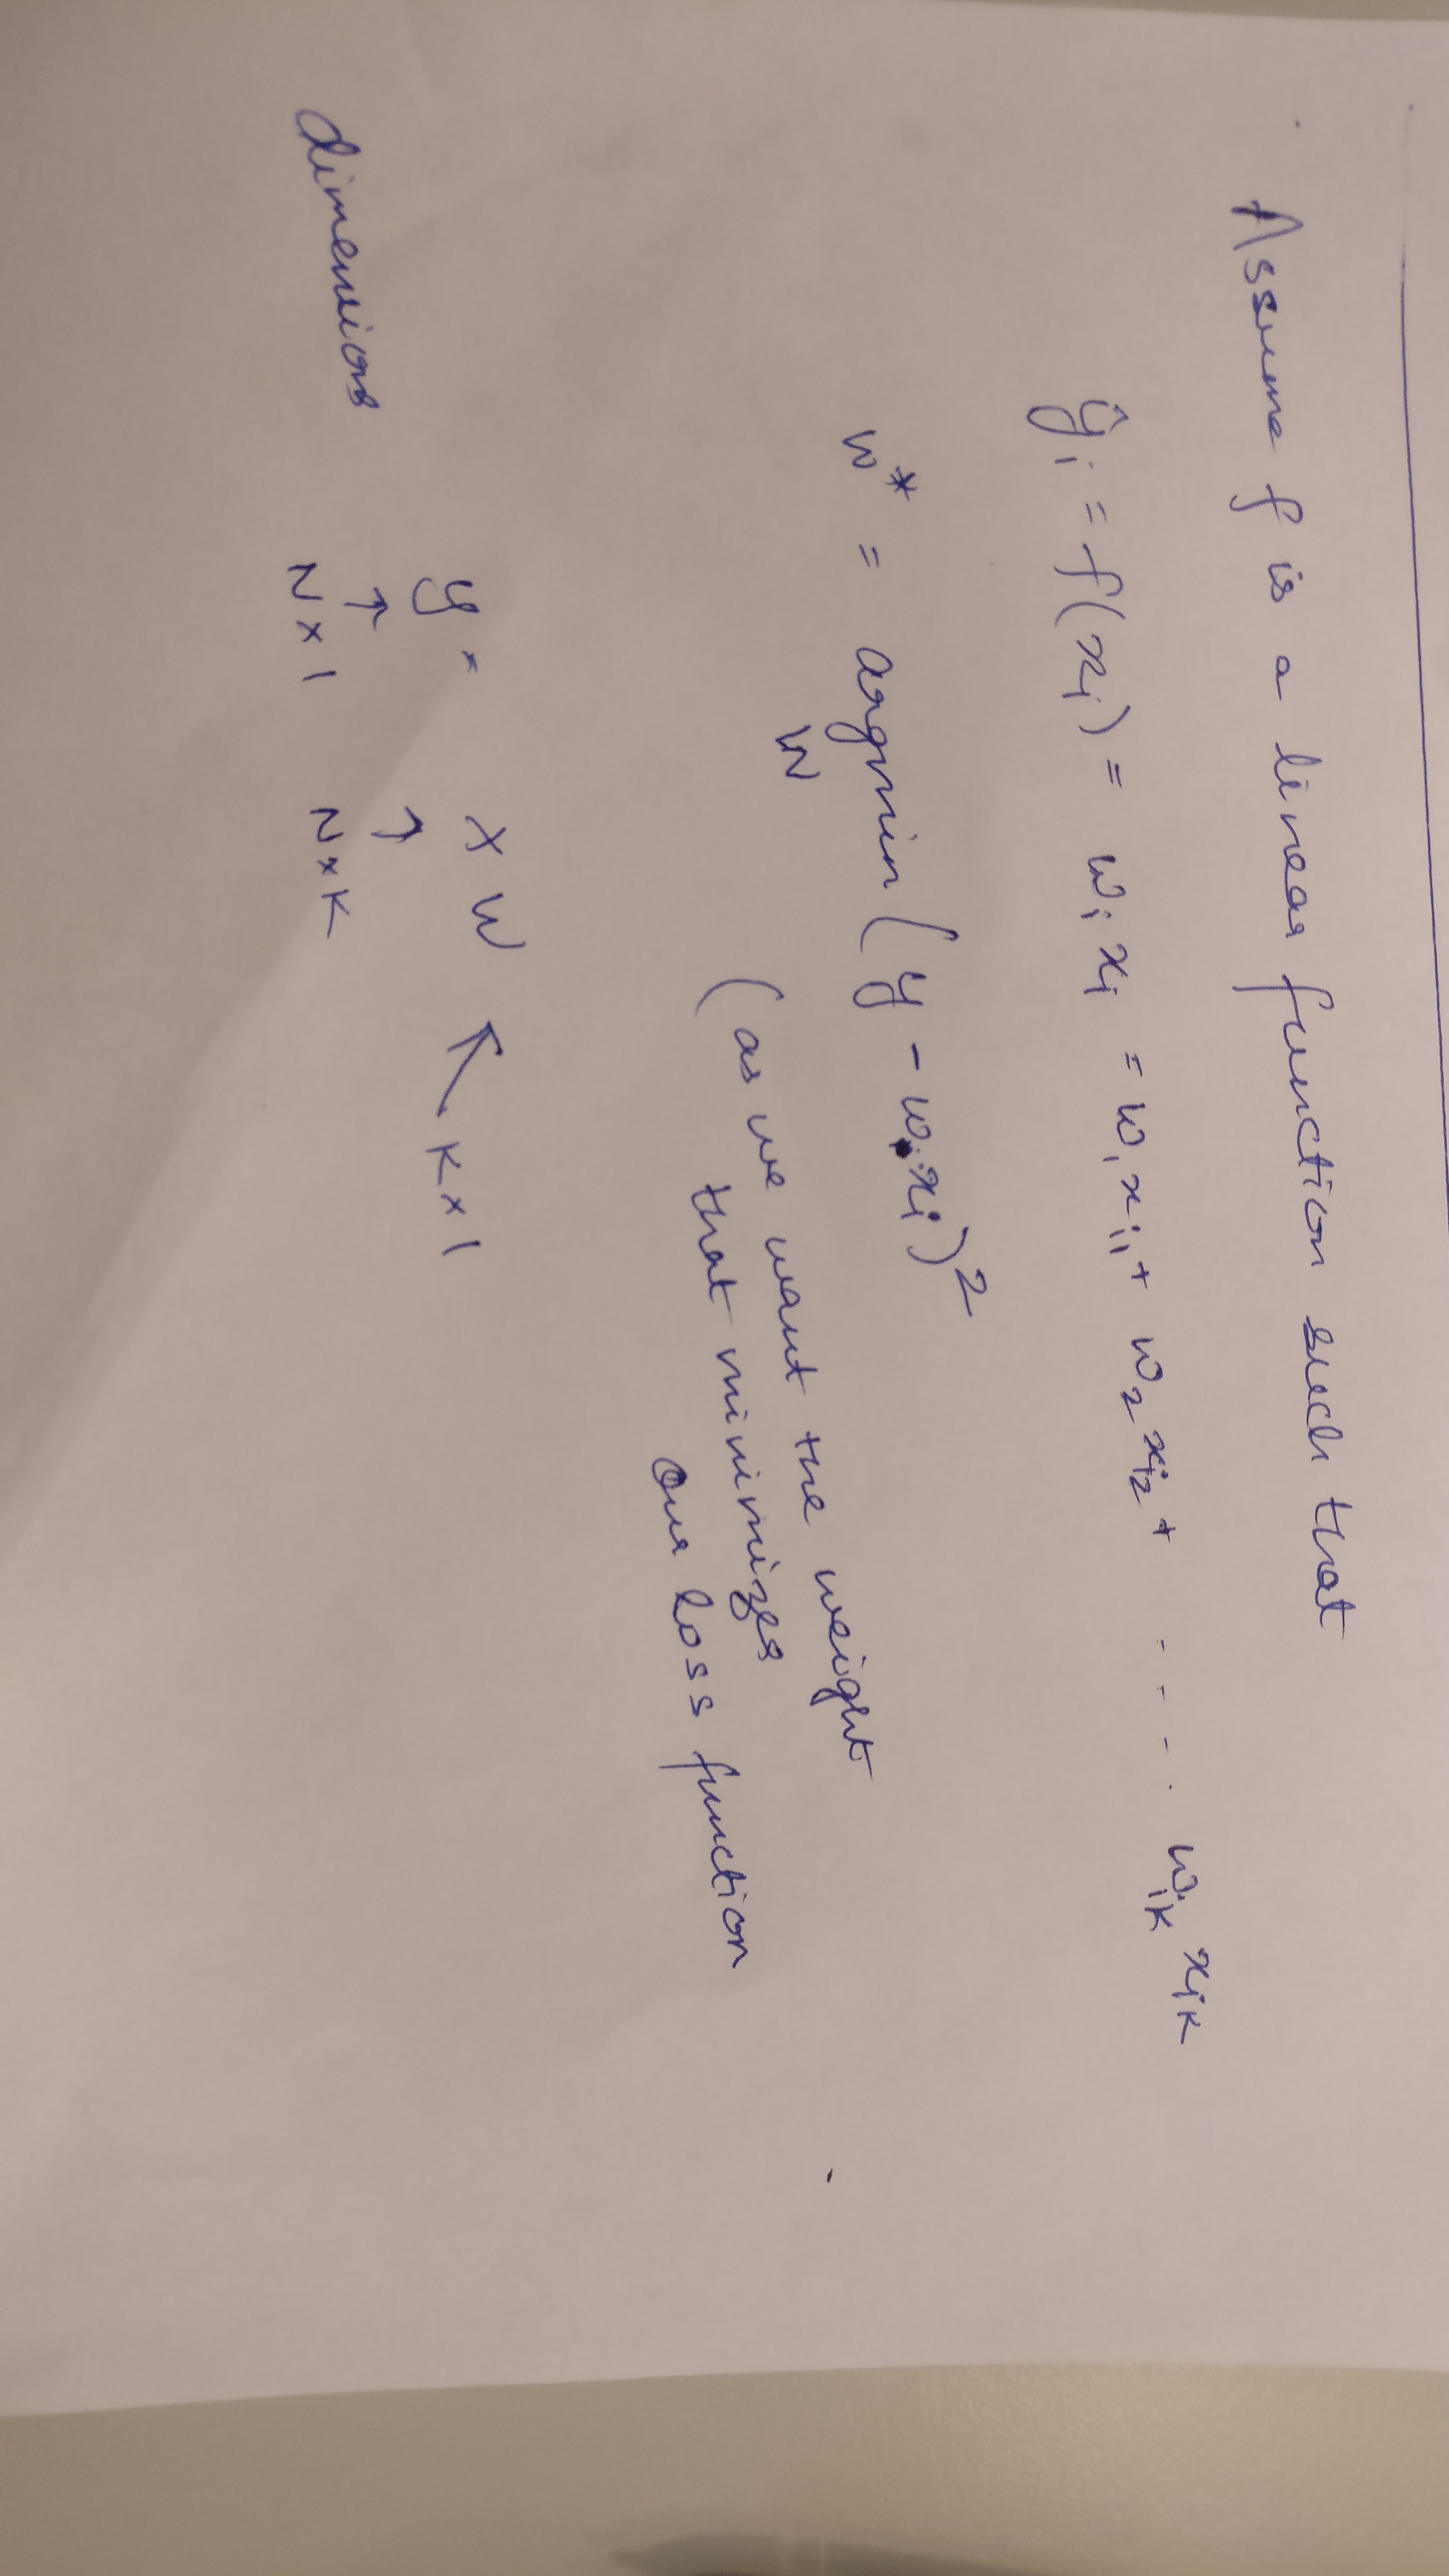 Assume f is a linear function such that
ŷᵢ = f(xᵢ) = wᵢ xᵢ = w₁ xᵢ₁ + w₂ xᵢ₂ + - - - . wᵢₖ xᵢₖ
w* = argmin (y - wᵢ xᵢ)²
W
(as we want the weight
that minimizes
our loss function
y = X W
dimensions N×1 N×K K×1